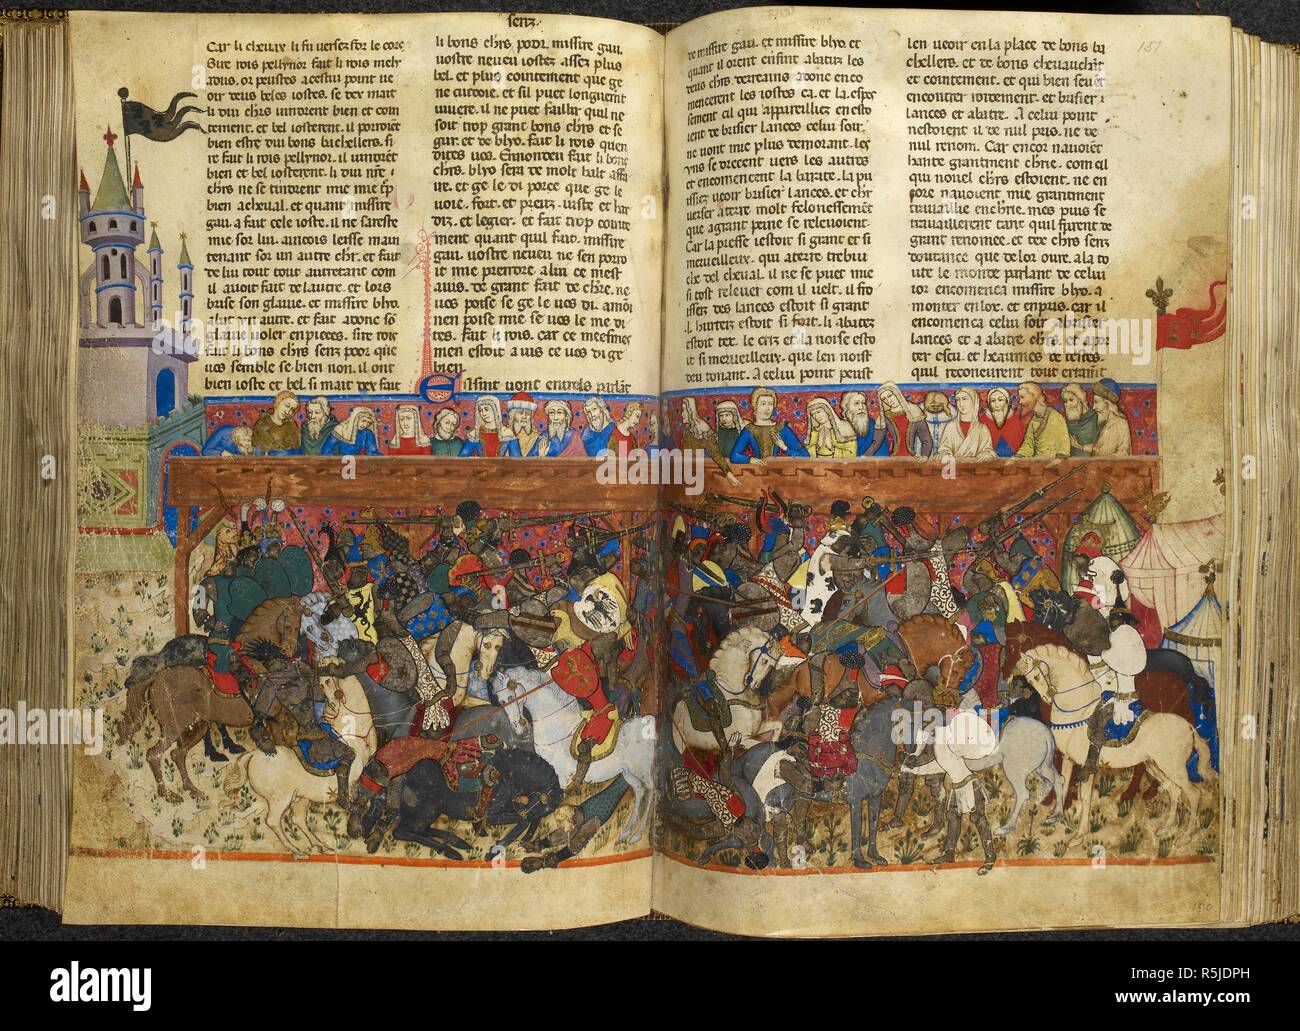 senz.
Car li cheuax li fu uersez sor le cors
Sire rois pellynor fait li rois meli
adus. or peustes acestui point ue
oir deus beles iostes. se dex mait
li dui chrs uindrent bien et coin
tement. et bel iosterent. il porroiēt
bien estre dui bons bachellers. si
re fait li rois pellynor. il uindrēt
bien et bel iosterent. li dui
chrs ne se tindrent mie
bien acheual. et quant missire
gau. a fait cele ioste. il ne sareste
mie sor lui. aincois leisse main
tenant sor un autre chr. et fait
de lui tout tout autretant com
il auoit fait de lautre. et lors
brise son glaiue. et missire blyo.
abat un autre. et fait adonc sō
glaiue uoler en pieces. sire rois
fait li bons chrs senz poor que
uos semble se bien non. il ont
bien ioste et bel si mait dex fait
li bons chrs poor. missire gau.
uostre neueu iostez assez plus
bel. et plus cointement que ge
ne cuidoie. et sil puet longuemt
uiure. il ne puet faillir quil ne
soit trop grant bons chrs et se
gur. et de blyo. fait li rois quen
dites uos. Enondeu fait li bons
chrs. blyo sera de molt balt affa
ire. et ge le di porce que ge le
uoie. fort. et preuz. uiste et har
diz. et legier. et fait trop cointe
ment quant quil fait. missire
gau. uostre neueu ne sen porro
it mie prendre a lui ce mest
auis. de grant fait de chr̄e. ne
uos poise se ge le uos di. amōi
nen poise mie se uos le me di
tes. fait li rois. car ce meesmes
men estoit auis ce uos di ge
bien.
Ensint uont entrels parlāt
de missire gau. et missire blyo et
quant il orent ensint abatuz les
deus chrs derreains adonc enco
mencerent les iostes ca. et la. espes
sement cil qui appareilliez en esto
ient de brisier lances celui soir.
ne uont mie plus demorant. les
uns se drecent uers les autres
et encomencent la barate. la pu
issiez ueoir brisier lances. et chr
uerser a terre molt felonessemēt
que a grant peine se releuoient.
Car la presse iestoit si grant et si
merueilleux. qui a terre trebu
che del cheual. il ne se puet mie
si tost releuer com il uelt. li fro
issez des lances estoit si grant
li hurteiz estoit si fort. li abatez
estoit tex. le criz et la noise esto
it si merueilleux. que len noist
deu tonant. A celui point peust
151
len ueoir en la place de bons ba
chellers. et de bons cheuauchāt
et cointement. et qui bien seuēt
encontrer fortement. et brisier
lances et abatre. A celui point
nestoient il de nul pris. ne de
nul renom. Car encor nauoiēt
hante granment chr̄ie. com cil
qui nouel chrs estoient. ne en
core nauoient mie granment
trauaillie en chr̄ie. mes puis se
trauaillerent tant quil furent de
grant renomee. et dex chrs senz
doutance que delor oure. ala to
ute le monde parlant de celui
ior encomenca missire blyo. a
monter en lox. et en pris. car il
encomenca celui soir abrisier
lances et a abatre chrs. et apor
ter escu. et heaumes de testes.
quil reconeurent tout errāmt
150
alamy
Image ID: R5JDPH
www.alamy.com